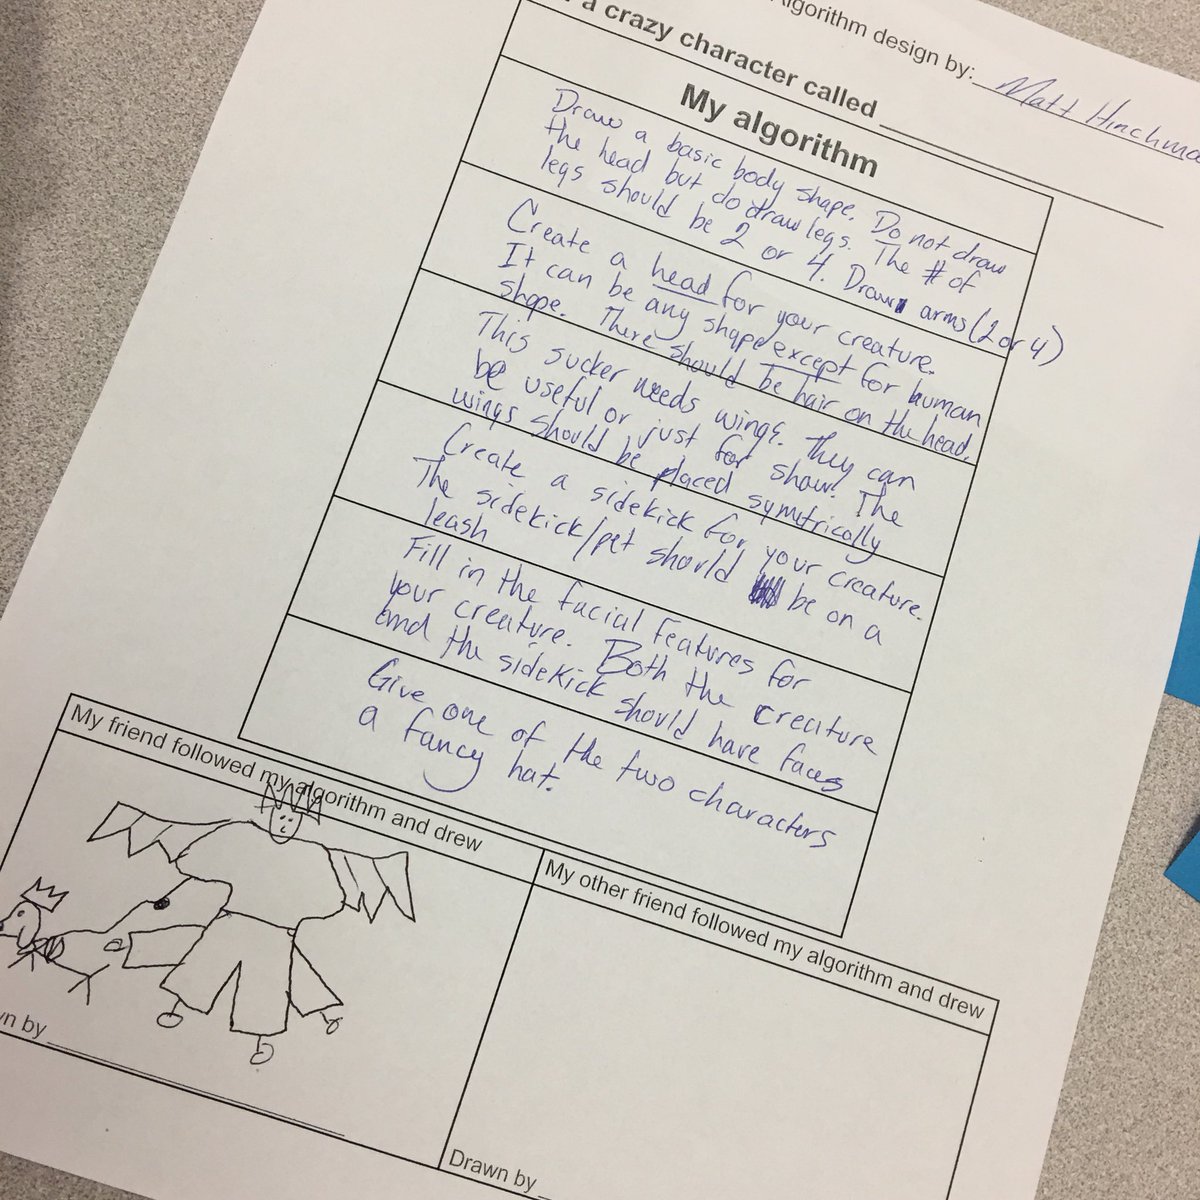 Algorithm design by: Matt Hinchma
a crazy character called
My algorithm
Draw a basic body shape. Do not draw
the head but do draw legs. The # of
legs should be 2 or 4. Draw arms (2 or 4)
Create a head for your creature.
It can be any shape except for human
shape. There should be hair on the head.
This sucker needs wings. They can
be useful or just for show. The
wings should be placed symitrically
Create a sidekick for your creature.
The sidekick/pet should be on a
leash
Fill in the facial features for
your creature. Both the creature
and the sidekick should have faces
Give one of the two characters
a fancy hat.
My friend followed my algorithm and drew
wn by
My other friend followed my algorithm and drew
Drawn by